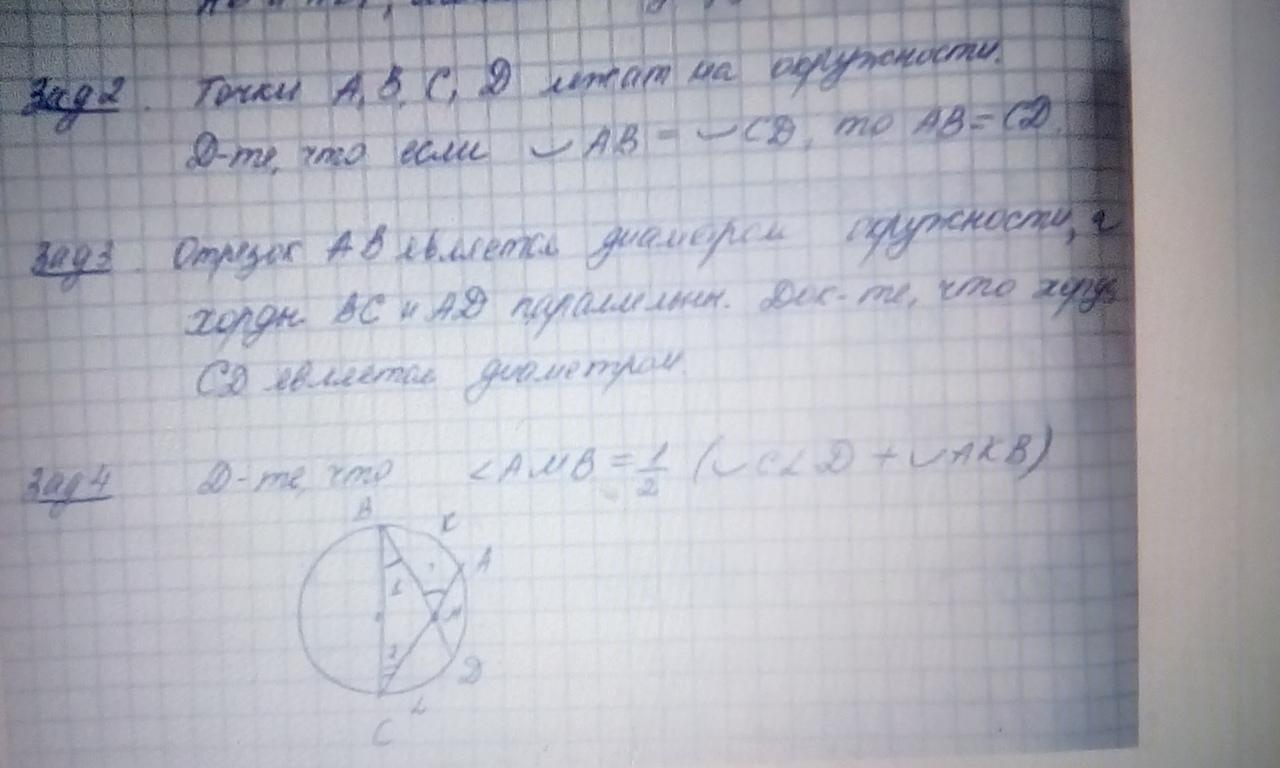 Зад 2. Точки A, B, C, D лежат на окружности.
Д-те, что если ◡ AB = ◡ CD, то AB = CD.
Зад 3. Отрезок AB является диаметром окружности, а
хорды BC и AD параллельны. Док-те, что хорда
CD является диаметром.
Зад 4 Д-те, что ∠AMB = 1/2 (◡CLD + ◡AKB)
B K
A
1
M
2
D
L
C